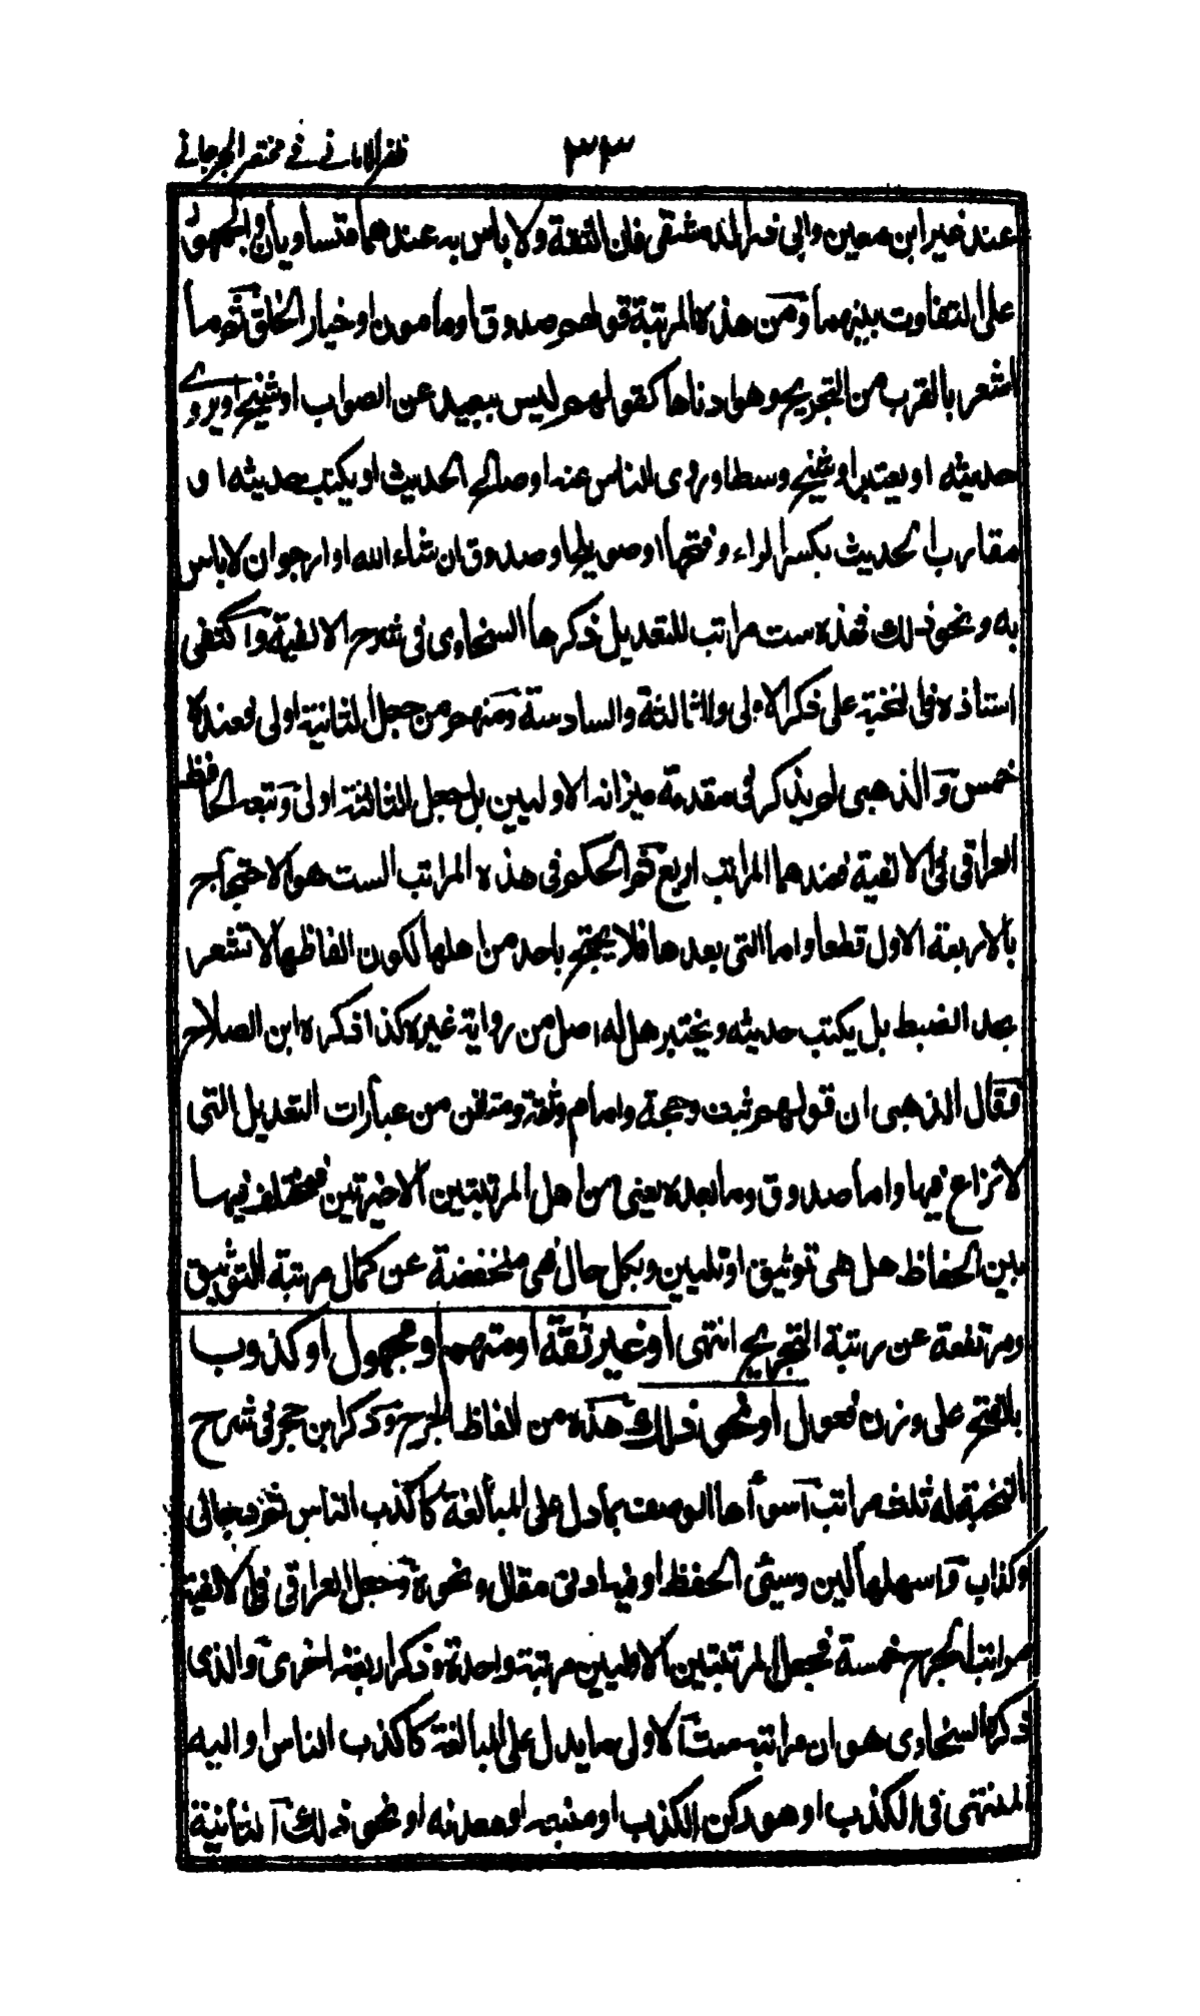 ظفر الامانے فے مختصر الجرجانے
٣٣
عند غير ابن معين وابي زرعة الدمشقى فان الثقة ولا باس به عندهما متساويان والجمهور
على التفاوت بينهما ومن هذه المرتبة قولهم صدوق او مامون او خيار الخلق ثم ما
اشعر بالقرب من التجريح وهو ادناها كقولهم ليس ببعيد عن الصواب او شيخ او يروے
حديثه او يعتبر او شيخ وسط او روى الناس عنه او صالح الحديث او يكتب حديثه او
مقارب الحديث بكسر الراء وفتحها او صويلح او صدوق ان شاء الله او ارجو ان لا باس
به ونحو ذلك فهذه ست مراتب للتعديل ذكرها السخاوى فى شرح الالفية واكتفى
استاذه فى النخبة على ذكر الاولى والثالثة والسادسة ومنهم من جعل الثانية اولى فعنده
خمس والذهبى لم يذكر فى مقدمة ميزانه الاوليين بل جعل الثالثة اولى وتبعه الحافظ
العراقى فى الالفية فعندهما المراتب اربع ثم الحكم فى هذه المراتب الست هو الاحتجاج
بالاربعة الاول قطعا واما التى بعدها فلا يحتج باحد من اهلها لكون الفاظها لا تشعر
بحد الضبط بل يكتب حديثه ويختبر هل له اصل من رواية غيره كذا ذكره ابن الصلاح
فقال الذهبى ان قولهم ثبت وحجة وامام وثقة ومتقن من عبارات التعديل التى
لا نزاع فيها واما صدوق وما بعده يعنى من اهل المرتبتين الاخيرتين فمختلف فيها
بين الحفاظ هل هى توثيق او تليين وبكل حال فهى منخفضة عن كمال مرتبة التوثيق
ومرتفعة عن رتبة التجريح انتهى او غير ثقة او متهم او مجهول او كذوب
بالفتح على وزن فعول او نحو ذلك هذه من الفاظ الجرح وذكر ابن حجر فى شرح
النخبة له ثلث مراتب اسوأها الوصف بما دل على المبالغة كاكذب الناس ثم دجال
وكذاب واسهلها لين وسيئ الحفظ او فيه ادنى مقال ونحوه وجعل العراقى فى الالفية
مراتب الجرح خمسة فجعل المرتبتين الاوليين مرتبة واحدة وذكر اربعة اخرى والذى
ذكره السخاوى هو ان مراتبه ست الاولى ما يدل على المبالغة كاكذب الناس او اليه
المنتهى فى الكذب او هو ركن الكذب او منبعه او معدنه او نحو ذلك الثانية